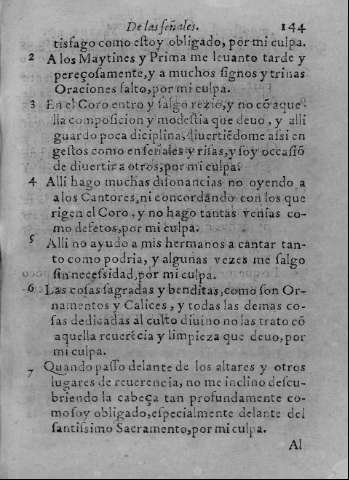 De las señales. 144
tisfago como estoy obligado, por mi culpa.
2 A los Maytines y Prima me leuanto tarde y
pereçosamente, y a muchos signos y trinas
Oraciones falto, por mi culpa.
3 En el Coro entro y salgo rezio, y no cõ aque
lla composicion y modestia que deuo, y alli
guardo poca diciplina, diuertiẽdome assi en
gestos como en señales y risas, y soy occasiõ
de diuertir a otros, por mi culpa.
4 Alli hago muchas disonancias no oyendo a
a los Cantores, ni concordando con los que
rigen el Coro, y no hago tantas venias co-
mo defetos, por mi culpa.
5 Alli no ayudo a mis hermanos a cantar tan-
to como podria, y algunas vezes me salgo
sin necessidad, por mi culpa.
6 Las cosas sagradas y benditas, como son Or-
namentos y Calices, y todas las demas co-
sas dedicadas al culto diuino no las trato cõ
aquella reuerẽcia y limpieza que deuo, por
mi culpa.
7 Quando passo delante de los altares y otros
lugares de reuerencia, no me inclino descu-
briendo la cabeça tan profundamente co-
mo soy obligado, especialmente delante del
santissimo Sacramento, por mi culpa.
Al